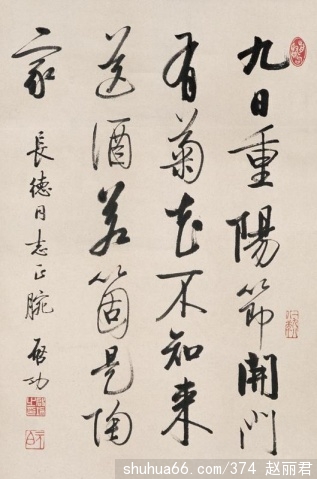 九日重陽節開門
有菊花不知來
送酒若箇是陶
家
長德同志正腕 啟功
shuhua66.com/374 赵丽君